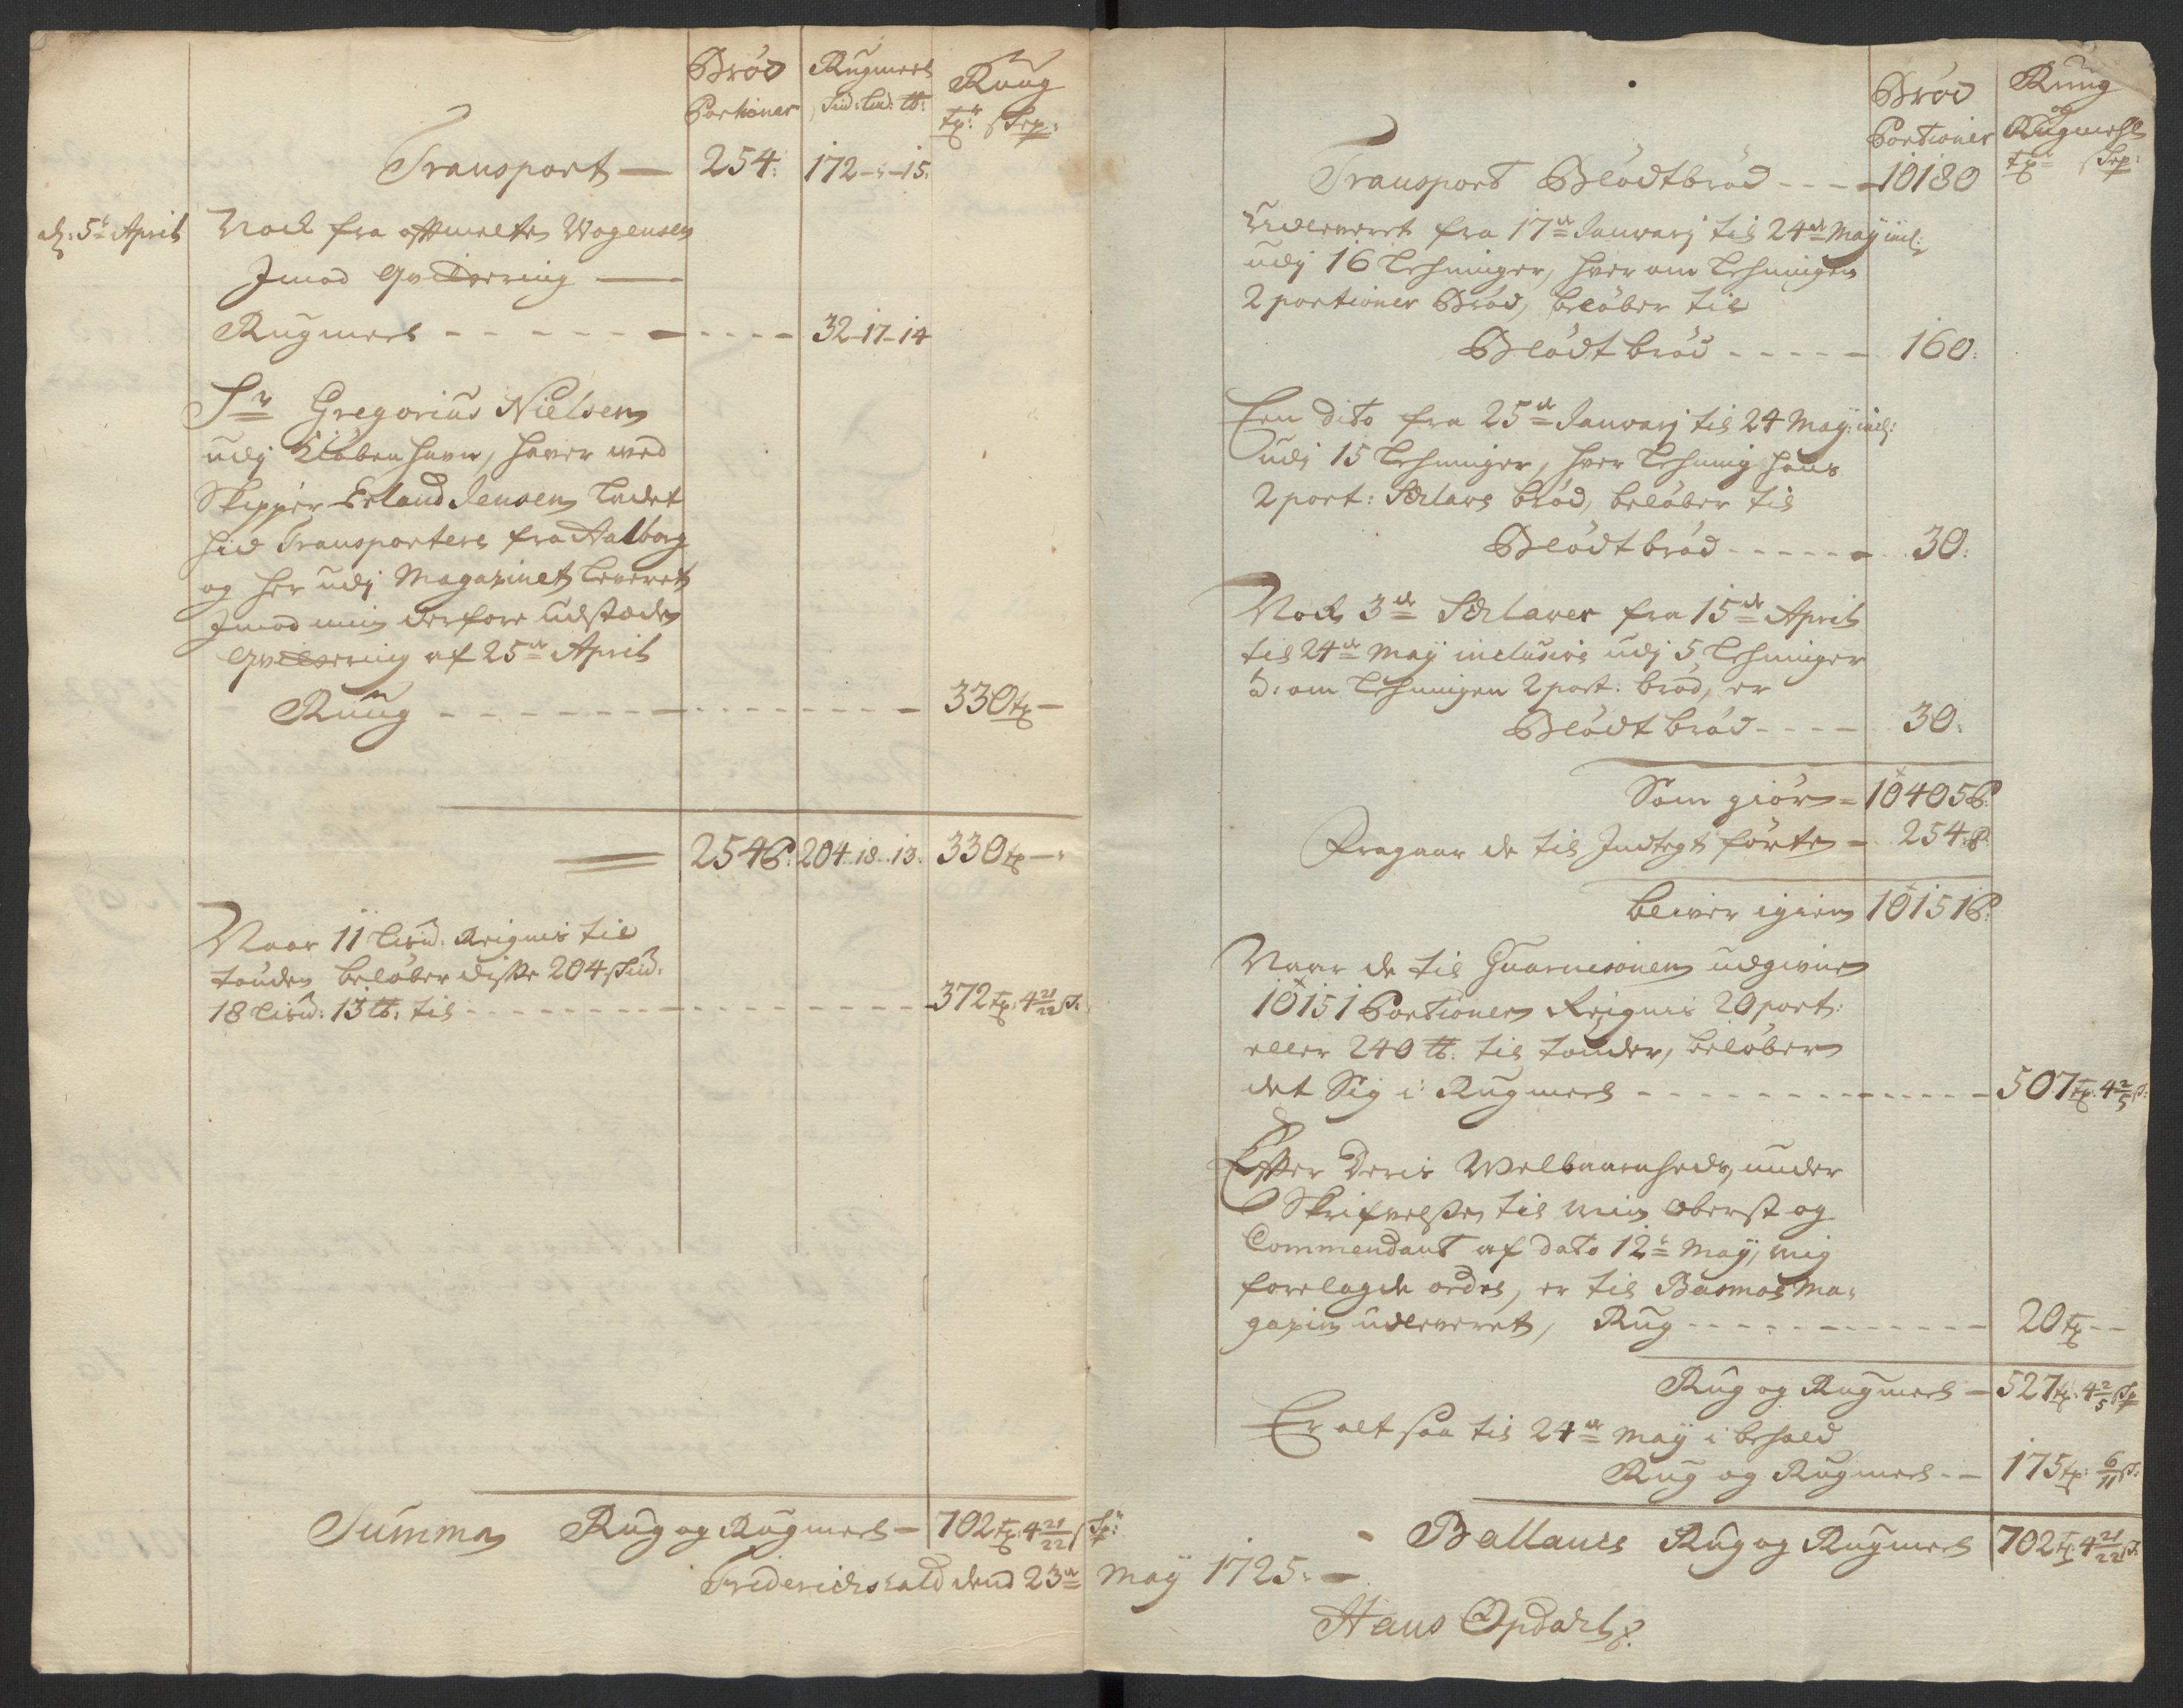 Brød Rugmeel Ruug
Portioner Skd: Lisd: ℔: Tr: Skp:
Transport — 254: 172 - " - 15:
d: 5te April Noch fra affmelte Wogensen
Jmod Qvittering —
Rugmeel - - - - - - 32 - 17 - 14
Sr Gregorius Nielsen
udj Kiøbenhavn, hawer med
Skipper Erland Jensen ladet
hid Transportere fra Aalborg
og her udj Magazinet leweret
Jmod min derfore udstæde
Qvittering af 25de April
Ruug - - - - - - 330 tr —
254 P: 204 - 18 - 13: 330 tr — "
Naar 11 Lisd: Reignis til
tønden beløber disse 204 Skd:
18 Lisd: 13 ℔: til - - - - - 372 tr: 4 21/22 s:
Summa Rug og Rugmeel — 702 tr: 4 21/22 Sp:
Friderichshald dend 23de May 1725: —
Brød Ruug
Portioner og Rugmehl
tr: Skp:
Transport Blødtbrød - - - 10180
Udleweret fra 17de Januarj til 24de Maÿ incl:
udj 16 Lehninger, hver om Lehningen
2 portioner Brød, beløber til
Blødt brød - - - - - 160:
Een dito fra 25de Januarj til 24 Maÿ: incl:
udj 15 Lehninger, hver Lehning hans
2 port: Sclave brød, beløber til
Blødt brød - - - - - 30:
Noch 3de Sclaver fra 15de April
til 24de Maÿ inclusive udj 5 Lehninger
à: om Lehningen 2 port: brød, er
Blødt brød - - - - 30:
Som giør = 10405 P:
Fragaar de til Jndtegt førte = 254: P:
bliver igien 10151 P:
Naar de til Guarnisonen udgivne
10151 Portioner Reignis 20 port:
eller 240 ℔: til tønder, beløber
det Sig i Rugmeel - - - - - 507 tr: 4 2/5 s:
Effter Deris Welbaarenheds, under
Skrifvelse til min Oberst og
Commendant af dato 12te Maÿ, mig
forelagde ordre, er til Basmoe Ma-
gazin udleweret, Rug - - - - - 20 tr - -
Rug og Rugmeel — 527 tr: 4 2/5 Sp
Er alt saa til 24de Maÿ i behold
Rug og Rugmeel - - 175 tr: 6/11 s:
- Ballance Rug og Rugmeel 702 tr: 4 21/22 s:
Hans Opdahl